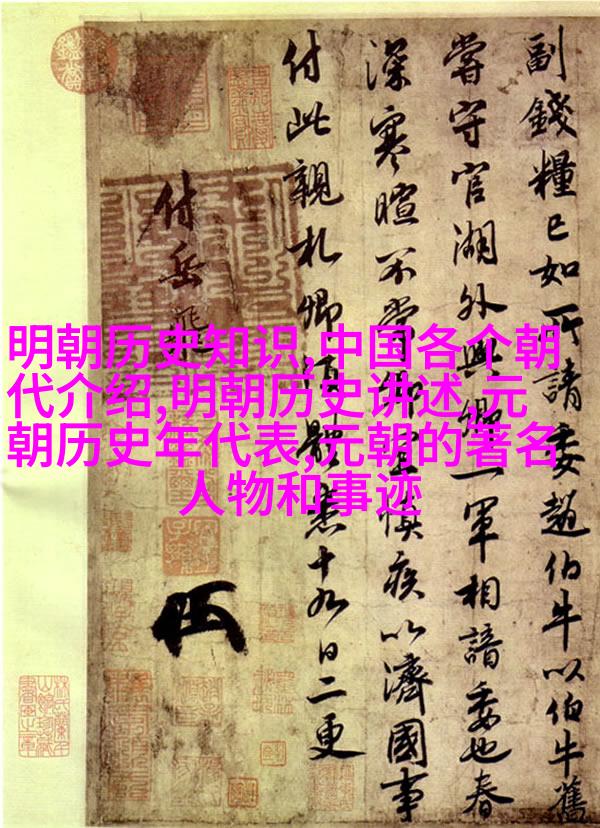 副錢糧已如所請委趙伯牛以伯牛舊
嘗守官湖外與卿一軍相諳委也春
深寒暄不常卿宜慎疾以濟國事
付此親札卿須體悉十九日二更
付岳飛
明朝历史知识,中国各个朝
代介绍,明朝历史讲述,元
朝历史年代表,元朝的著名
人物和事迹